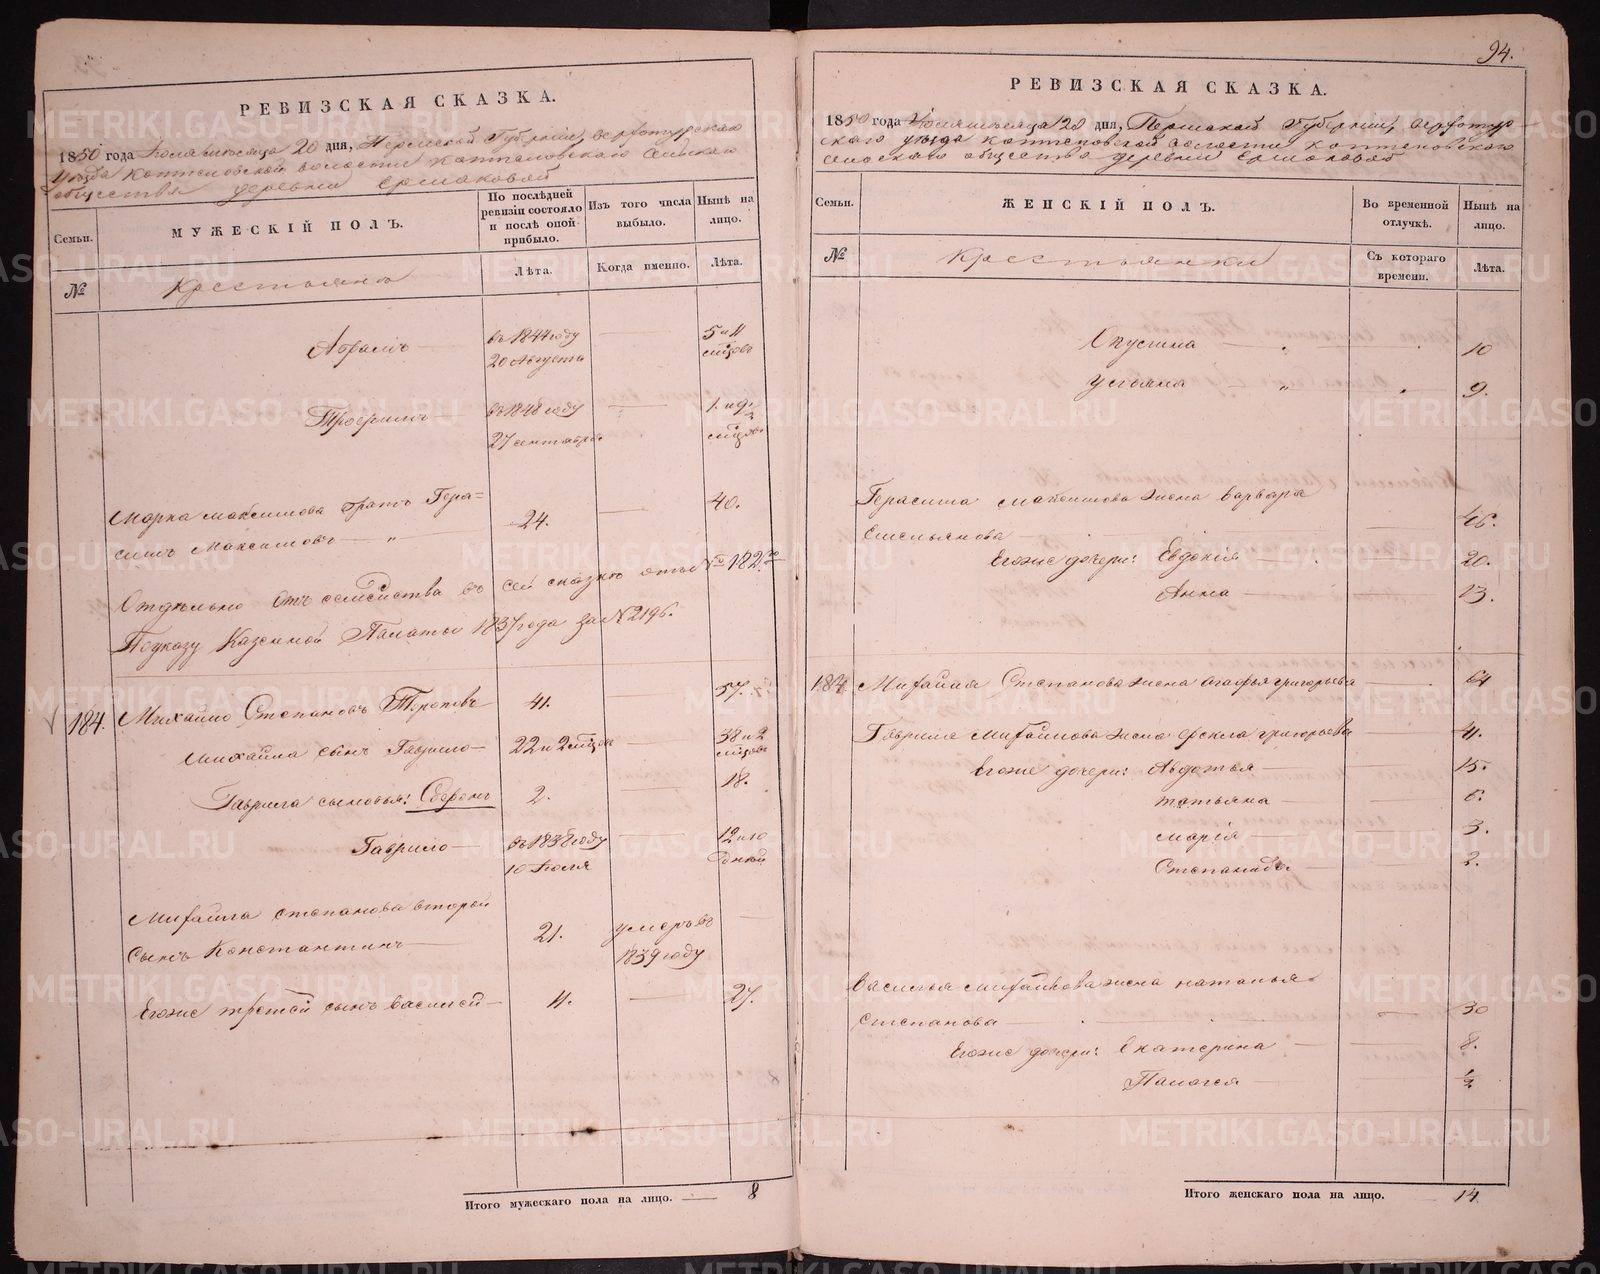 94.
РЕВИЗСКАЯ СКАЗКА.
1850 года Июля месяца 20 дня, Пермской Губернии, верхотурскаго
Уезда коптеловской волости коптеловскаго сельскаго
общества деревни Ермаковой
Семьи.
МУЖЕСКІЙ ПОЛЪ.
По послѣдней ревизіи состояло и послѣ оной прибыло.
Изъ того числа выбыло.
Нынѣ на лицо.
№
Крестьяне
Лѣта.
Когда именно.
Лѣта.
Абрамъ
въ 1844 году 5 и 11
20 Августа мцовъ
Трофимъ
въ 1848 году 1. и 9.
27 сентября мцовъ
Марка максимова братъ Гера=
симъ Максимовъ 24. 40.
Отдѣльно отъ семейства въ сей сказкѣ отъ № 182го
По указу Казенной Палаты 1837 года за № 2196.
184. Михайло Степановъ Тороповъ 41. 57.
Михайла сынъ Гаврило 22 и 2 мцов 38 и 2
мцовъ
Гаврила сыновья: Софронъ 2. 18.
Гаврило въ 1838 году 12 и 10
10 Июля дней
Михайла степанова второй
сынъ Константинъ 21. умеръ въ
1839 году
Егоже третей сынъ Василей 11. 27.
Итого мужескаго пола на лицо. 8
РЕВИЗСКАЯ СКАЗКА.
1850 года Июля месяца 20 дня, Пермской Губернии, верхотур
скаго уезда коптеловской волости коптеловскаго
сельскаго общества деревни Ермаковой
Семьи.
ЖЕНСКІЙ ПОЛЪ.
Во временной отлучкѣ.
Нынѣ на лицо.
№
Крестьянки
Съ котораго времени.
Лѣта.
Акулина " 10
Устьяна " 9.
Герасима максимова жена варвара
Емельянова 46.
Егоже дочери: Евдокія 20.
Анна 13.
184. Михайла Степанова жена агафья григорьева 64
Гаврила Михайлова жена фекла григорьева 41.
Егоже дочери: Авдотья 15.
татьяна 6.
марія 3.
Степанида 2.
Василья михайлова жена наталья
степанова 30
Егоже дочери: Екатерина 8.
Палагея 1/2
Итого женскаго пола на лицо. 14